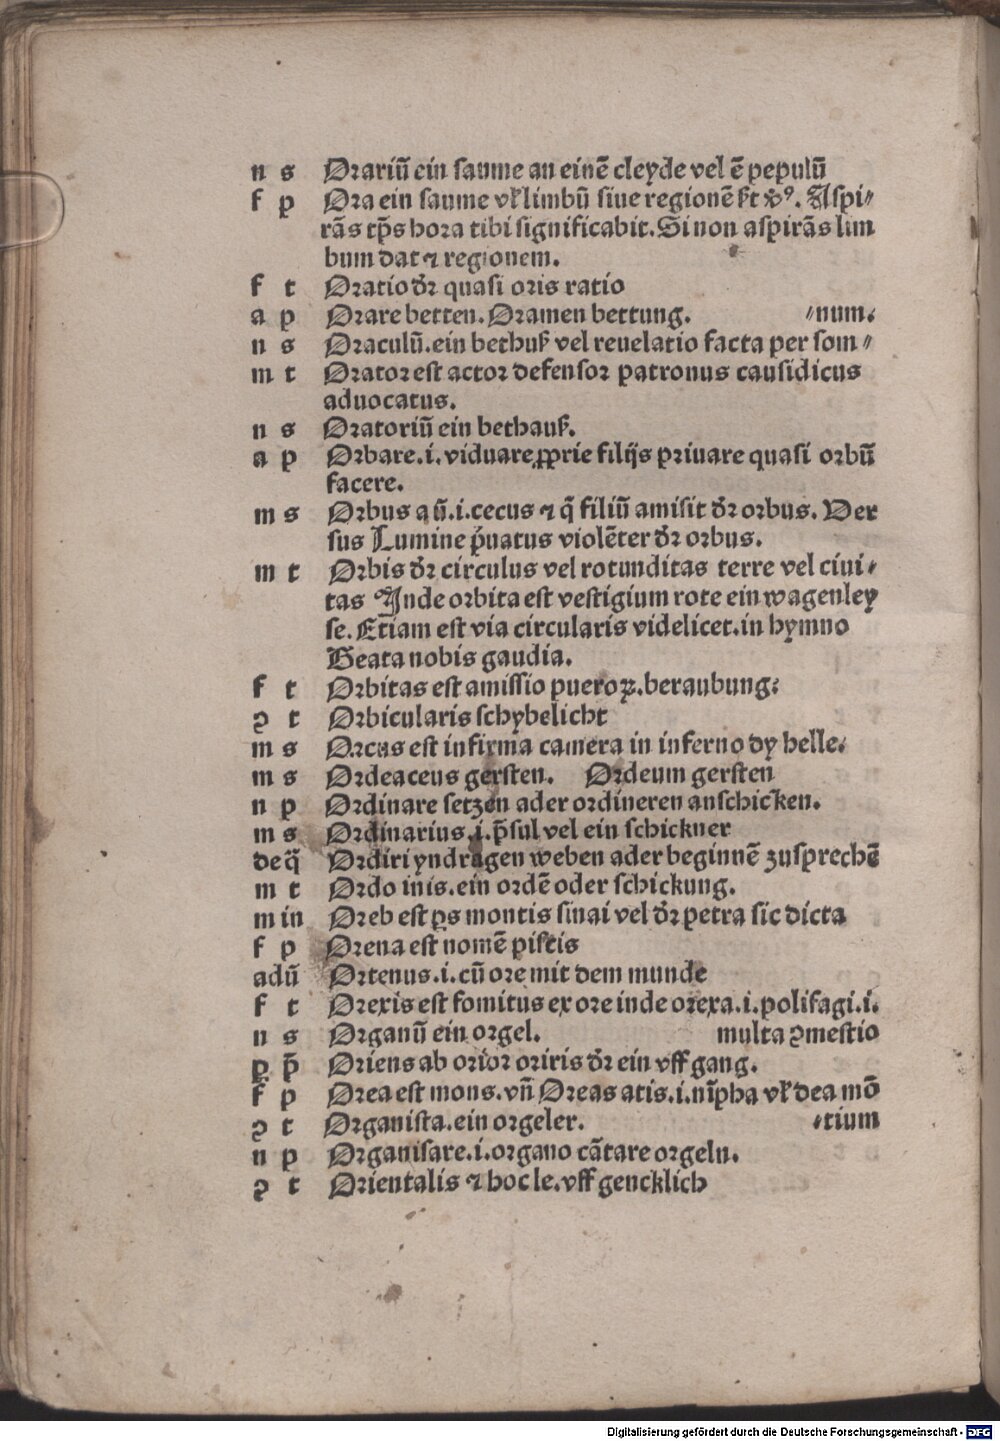 n s Orariū ein saume an einē cleyde vel ē pepulū
f p Ora ein saume vƚ limbū siue regionē Aspi⸗
rās tp̄s hora tibi significabit. Si non aspirās lim
bum dat ⁊ regionem.
f t Oratio dr̄ quasi oris ratio
a p Orare betten. Oramen bettung. ⸗num.
n s Oraculū. ein bethuß vel reuelatio facta per som⸗
m t Orator est actor defensor patronus causidicus
aduocatus.
n s Oratoriū ein bethauß.
a p Orbare .i. viduare ꝓprie filijs priuare quasi orbū
facere.
m s Orbus a ū .i. cecus ⁊ q̄ filiū amisit dr̄ orbus. Ver
sus Lumine p̄uatus violēter dr̄ orbus.
m t Orbis dr̄ circulus vel rotunditas terre vel ciui⸗
tas Inde orbita est vestigium rote ein wagenley
se. Etiam est via circularis videlicet. in hymno
Beata nobis gaudia.
f t Orbitas est amissio pueroꝝ. beraubung.
ꝯ t Orbicularis schybelicht
m s Orcus est infirma camera in inferno dy helle.
m s Ordeaceus gersten. Ordeum gersten
n p Ordinare setzen ader ordineren anschicken.
m s Ordinarius .i. p̄sul vel ein schickner
deq̄ Ordiri yndragen weben ader beginnē zusprechē
m t Ordo inis. ein ordē oder schickung.
m in Oreb est ꝑs montis sinai vel dr̄ petra sic dicta
f p Orena est nomē piscis
adū Ortenus .i. cū ore mit dem munde
f t Orexis est fomitus ex ore inde orexa .i. polifagi .i.
n s Organū ein orgel. multa ꝯmestio
ꝑ p̄ Oriens ab orior oriris dr̄ ein vff gang.
f p Orea est mons. vn̄ Oreas atis .i. nīpha vƚ dea mō
ꝯ t Organista. ein orgeler. ⸗tium
n p Organisare .i. organo cātare orgeln.
ꝯ t Orientalis ⁊ hoc le. vff gencklich
Digitalisierung gefördert durch die Deutsche Forschungsgemeinschaft - DFG